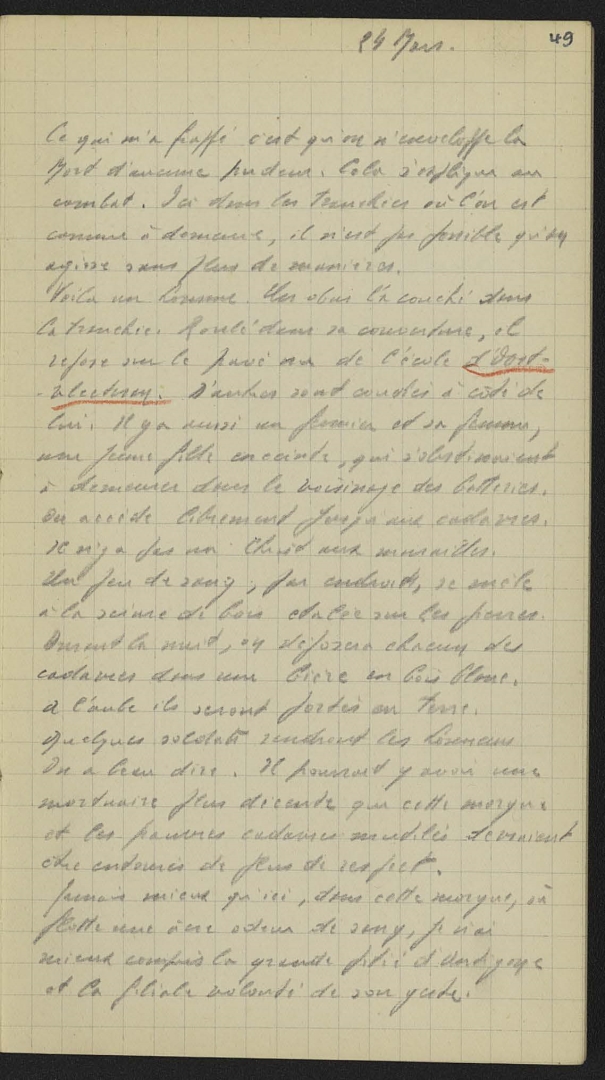 24 Mars.
49
Ce qui m'a frappé c'est qu'on n'enveloppe la
Mort d'aucune pudeur. Cela s'explique au
combat. Ici dans les tranchées où l'on est
comme à demeure, il n'est pas possible qu'on
agisse sans plus de manières.
Voilà un homme. Un obus l'a couché dans
la tranchée. Roulé dans sa couverture, il
repose sur le pavé nu de l'école d'Oost-
-vleteren. D'autres sont couchés à côté de
lui. Il y a aussi un fermier et sa femme,
une jeune fille enceinte, qui s'obstinaient
à demeurer dans le voisinage des batteries.
On accède librement jusqu'aux cadavres.
Il n'y a pas un Christ aux murailles.
Un peu de sang, par endroits, se mêle
à la sciure de bois étalée sur les pierres.
Durant la nuit, on déposera chacun des
cadavres dans une bière en bois blanc.
A l'aube ils seront portés en terre.
Quelques soldats rendront les honneurs
On a beau dire. Il pourrait y avoir une
mortuaire plus décente que cette morgue
et les pauvres cadavres mutilés devraient
être entourés de plus de respect.
Jamais mieux qu'ici, dans cette morgue, où
flotte une âcre odeur de sang, je n'ai
mieux compris la grande pitié d'Antigone
et la filiale volonté de son geste.